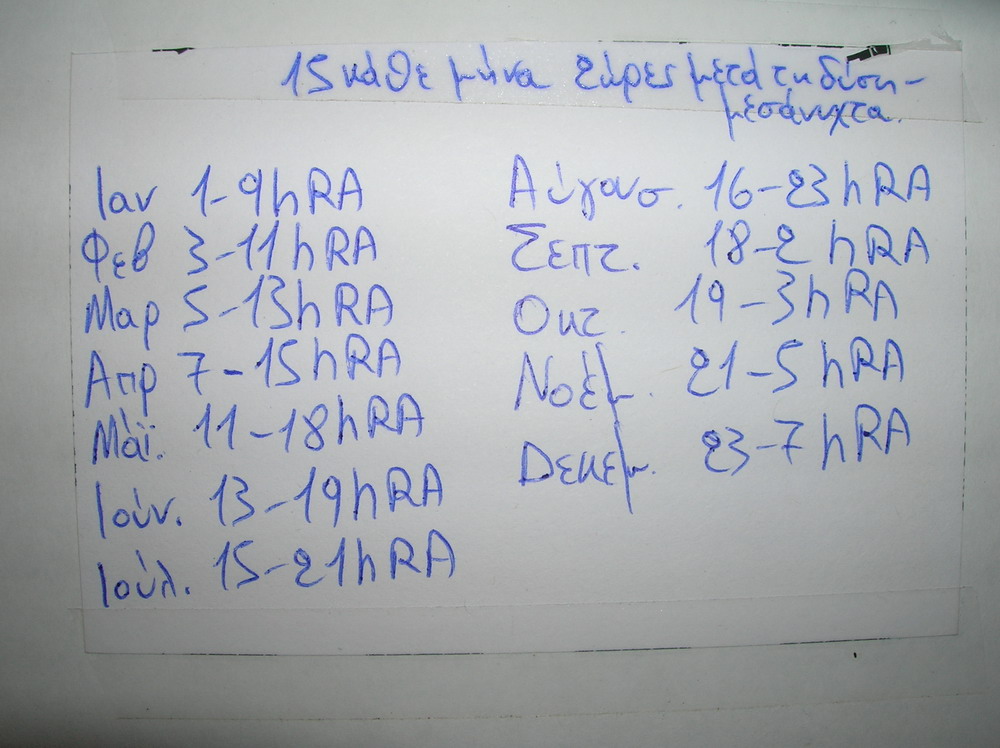 15 κάθε μήνα 2ώρες μετά τη δύση-
μεσάνυχτα.
Ιαν 1-9hRA
Φεβ 3-11hRA
Μαρ 5-13hRA
Απρ 7-15hRA
Μάϊ. 11-18hRA
Ιούν. 13-19hRA
Ιούλ. 15-21hRA
Αύγουσ. 16-23hRA
Σεπτ. 18-2 hRA
Οκτ. 19-3hRA
Νοέμ. 21-5 hRA
Dεκεμ. 23-7 hRA